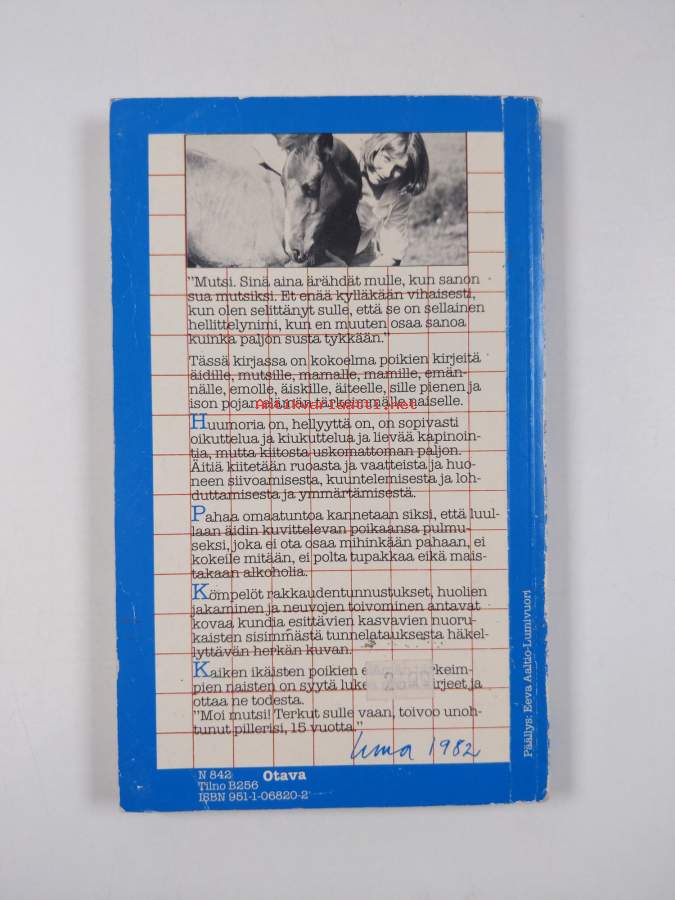 "Mutsi. Sinä aina ärähdät mulle, kun sanon
sua mutsiksi. Et enää kylläkään vihaisesti,
kun olen selittänyt sulle, että se on sellainen
hellittelynimi, kun en muuten osaa sanoa
kuinka paljon susta tykkään."
Tässä kirjassa on kokoelma poikien kirjeitä
äidille, mutsille, mamalle, mamille, emän-
nälle, emolle, äiskille, äiteelle, sille pienen ja
ison pojan elämän tärkeimmälle naiselle.
Antikvariaatti.net
Huumoria on, hellyyttä on, on sopivasti
oikuttelua ja kiukuttelua ja lievää kapinoin-
tia, mutta kiitosta uskomattoman paljon.
Äitiä kiitetään ruoasta ja vaatteista ja huo-
neen siivoamisesta, kuuntelemisesta ja loh-
duttamisesta ja ymmärtämisestä.
Pahaa omaatuntoa kannetaan siksi, että luul-
laan äidin kuvittelevan poikaansa pulmu-
seksi, joka ei ota osaa mihinkään pahaan, ei
kokeile mitään, ei polta tupakkaa eikä mais-
takaan alkoholia.
Kömpelöt rakkaudentunnustukset, huolien
jakaminen ja neuvojen toivominen antavat
kovaa kundia esittävien kasvavien nuoru-
kaisten sisimmästä tunnelatauksesta häkel-
lyttävän herkän kuvan.
Kaiken ikäisten poikien
pien naisten on syytä ja
ottaa ne todesta.
"Moi mutsi! Terkut sulle vaan, toivoo unoh-
tunut pillerisi, 15 vuotta."
1982
N 842 Otava
Tilno B256
ISBN 951-1-06820-2
Päällys: Eeva Aaltio-Lumivuori